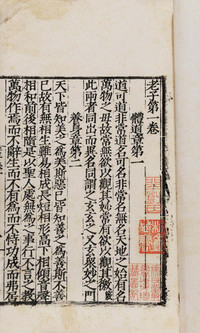 老子第一卷
體道章第一
道可道非常道名可名非常名無名天地之始有名
萬物之母故常無欲以觀其妙常有欲以觀其徼
此兩者同出而異名同謂之玄玄之又玄衆妙之門
養身章第二
天下皆知美之為美斯惡已皆知善之為善斯不善
已故有無相生難易相成長短相形高下相傾音聲
相和前後相隨是以聖人處無為之事行不言之教
萬物作焉而不辭生而不有為而不恃功成而弗居